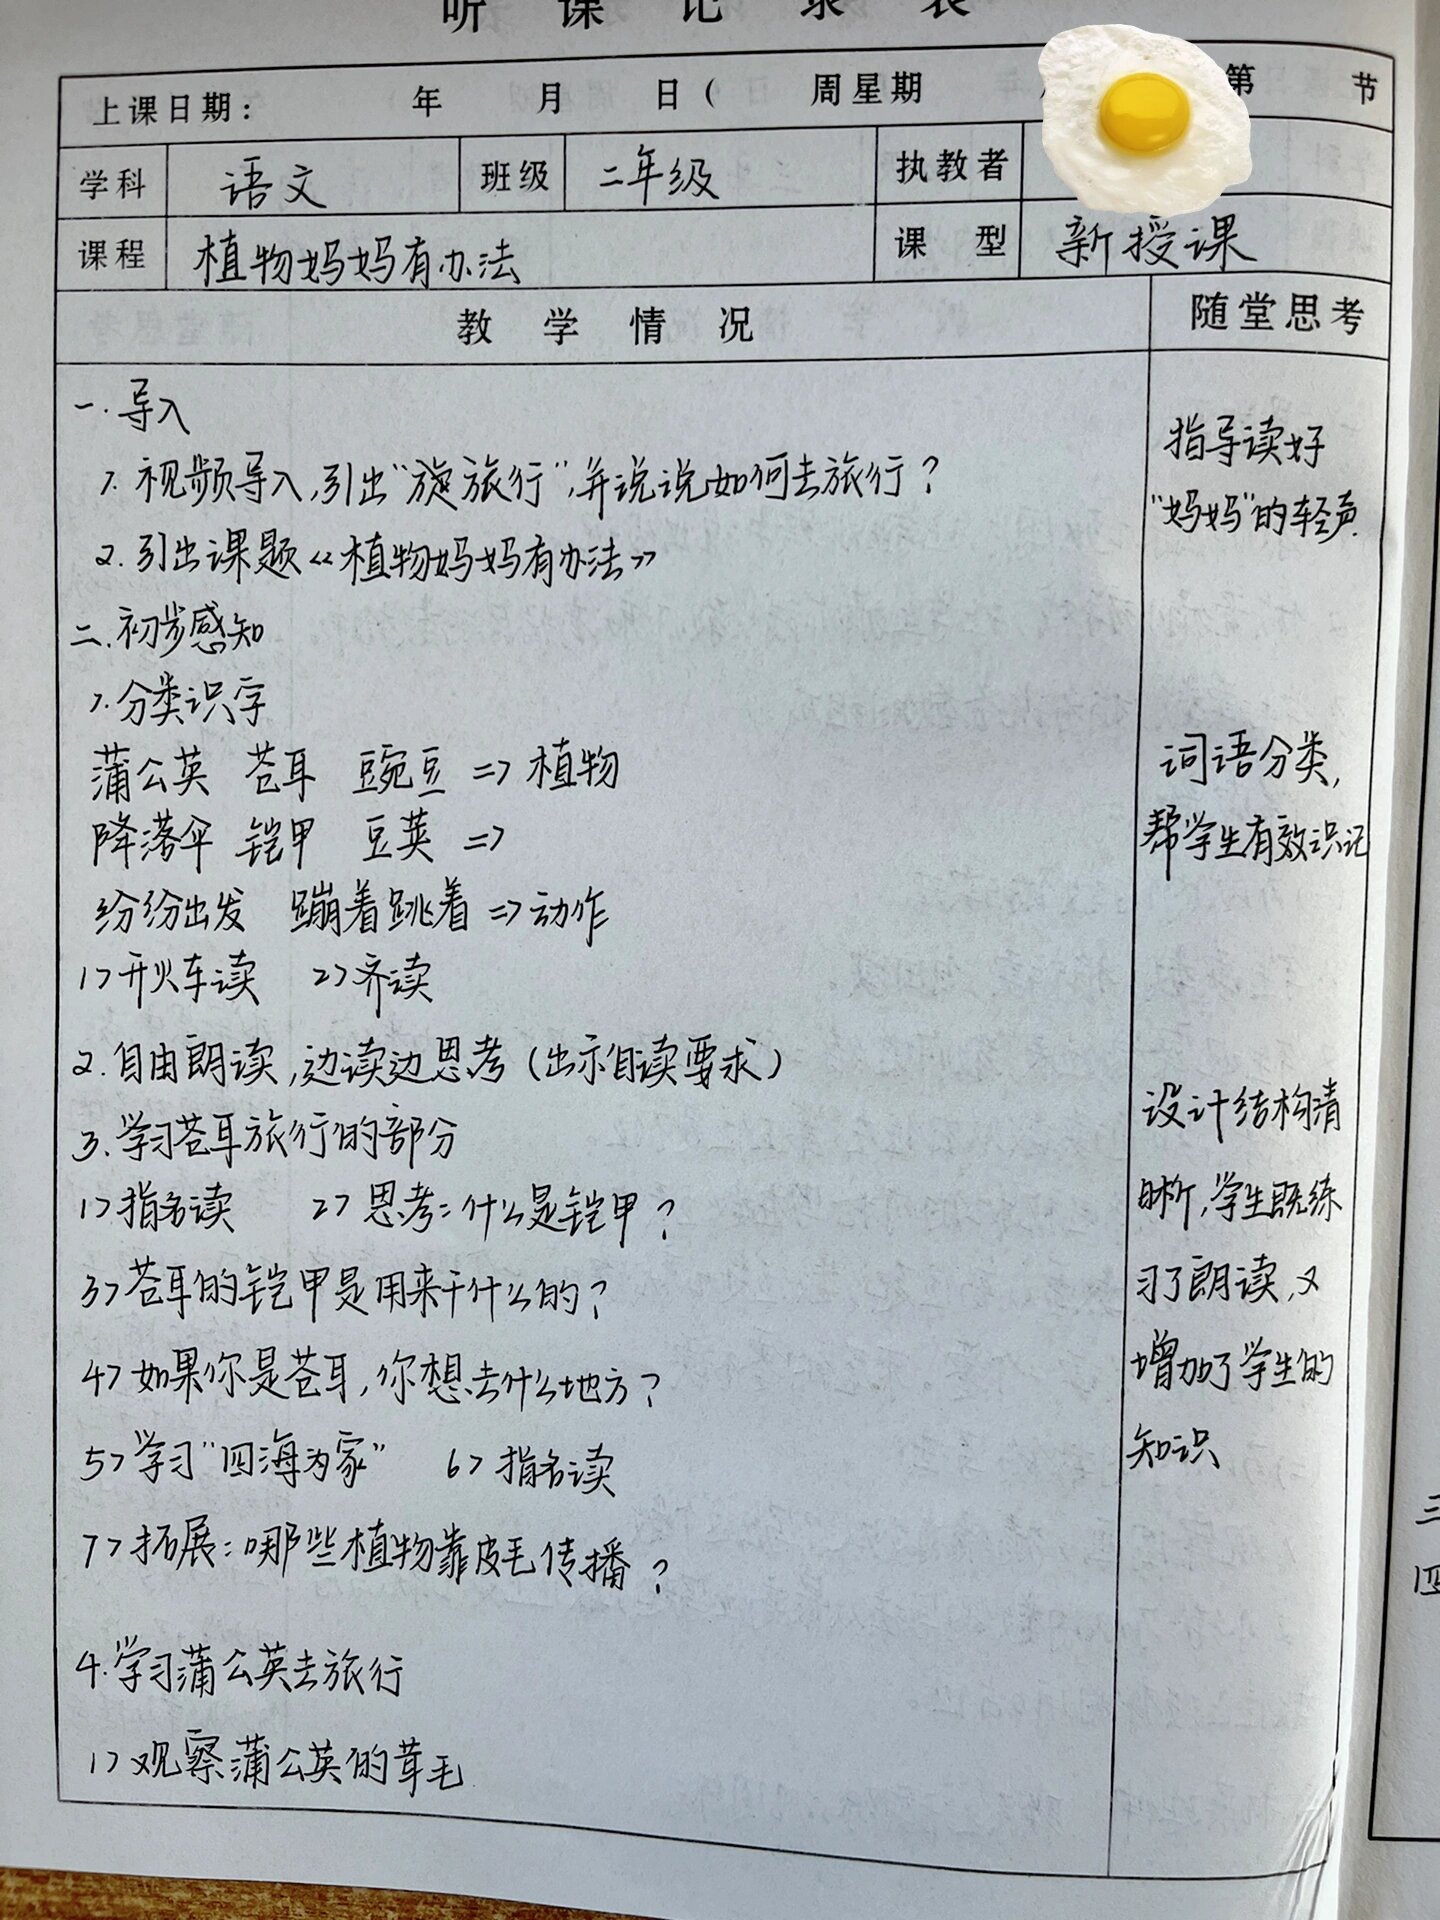 听课记录表
上课日期: 年 月 日( 周星期 第 节
学科 语文 班级 二年级 执教者
课程 植物妈妈有办法 课型 新授课
教学情况 随堂思考
一.导入
1.视频导入,引出"旋旅行",并说说如何去旅行?
2.引出课题《植物妈妈有办法》
二.初步感知
1.分类识字
蒲公英 苍耳 豌豆 => 植物
降落伞 铠甲 豆荚 =>
纷纷出发 蹦着跳着 => 动作
1>开火车读 2>齐读
2.自由朗读,边读边思考(出示自读要求)
3.学习苍耳旅行的部分
1>指名读 2>思考:什么是铠甲?
3>苍耳的铠甲是用来干什么的?
4>如果你是苍耳,你想去什么地方?
5>学习"四海为家" 6>指名读
7>拓展:哪些植物靠皮毛传播?
4.学习蒲公英去旅行
1>观察蒲公英的茸毛
指导读好
"妈妈"的轻声.
词语分类,
帮学生有效识记
设计结构清
晰,学生既练
习了朗读,又
增加了学生的
知识
三
四